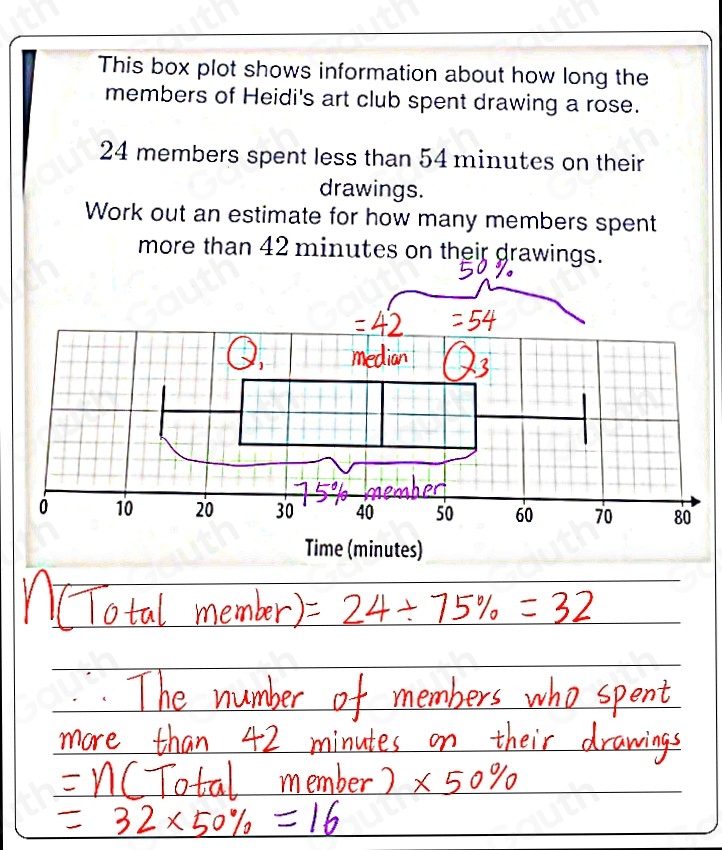 This box plot shows information about how long the
members of Heidi's art club spent drawing a rose.
24 members spent less than 54 minutes on their
drawings.
Work out an estimate for how many members spent
more than 42 minutes on their drawings.
50%
=42 =54
Q1 median Q3
75% member
0 10 20 30 40 50 60 70 80
Time (minutes)
n(Total member) = 24 ÷ 75% = 32
∴ The number of members who spent
more than 42 minutes on their drawings
= n(Total member) × 50%
= 32 × 50% = 16